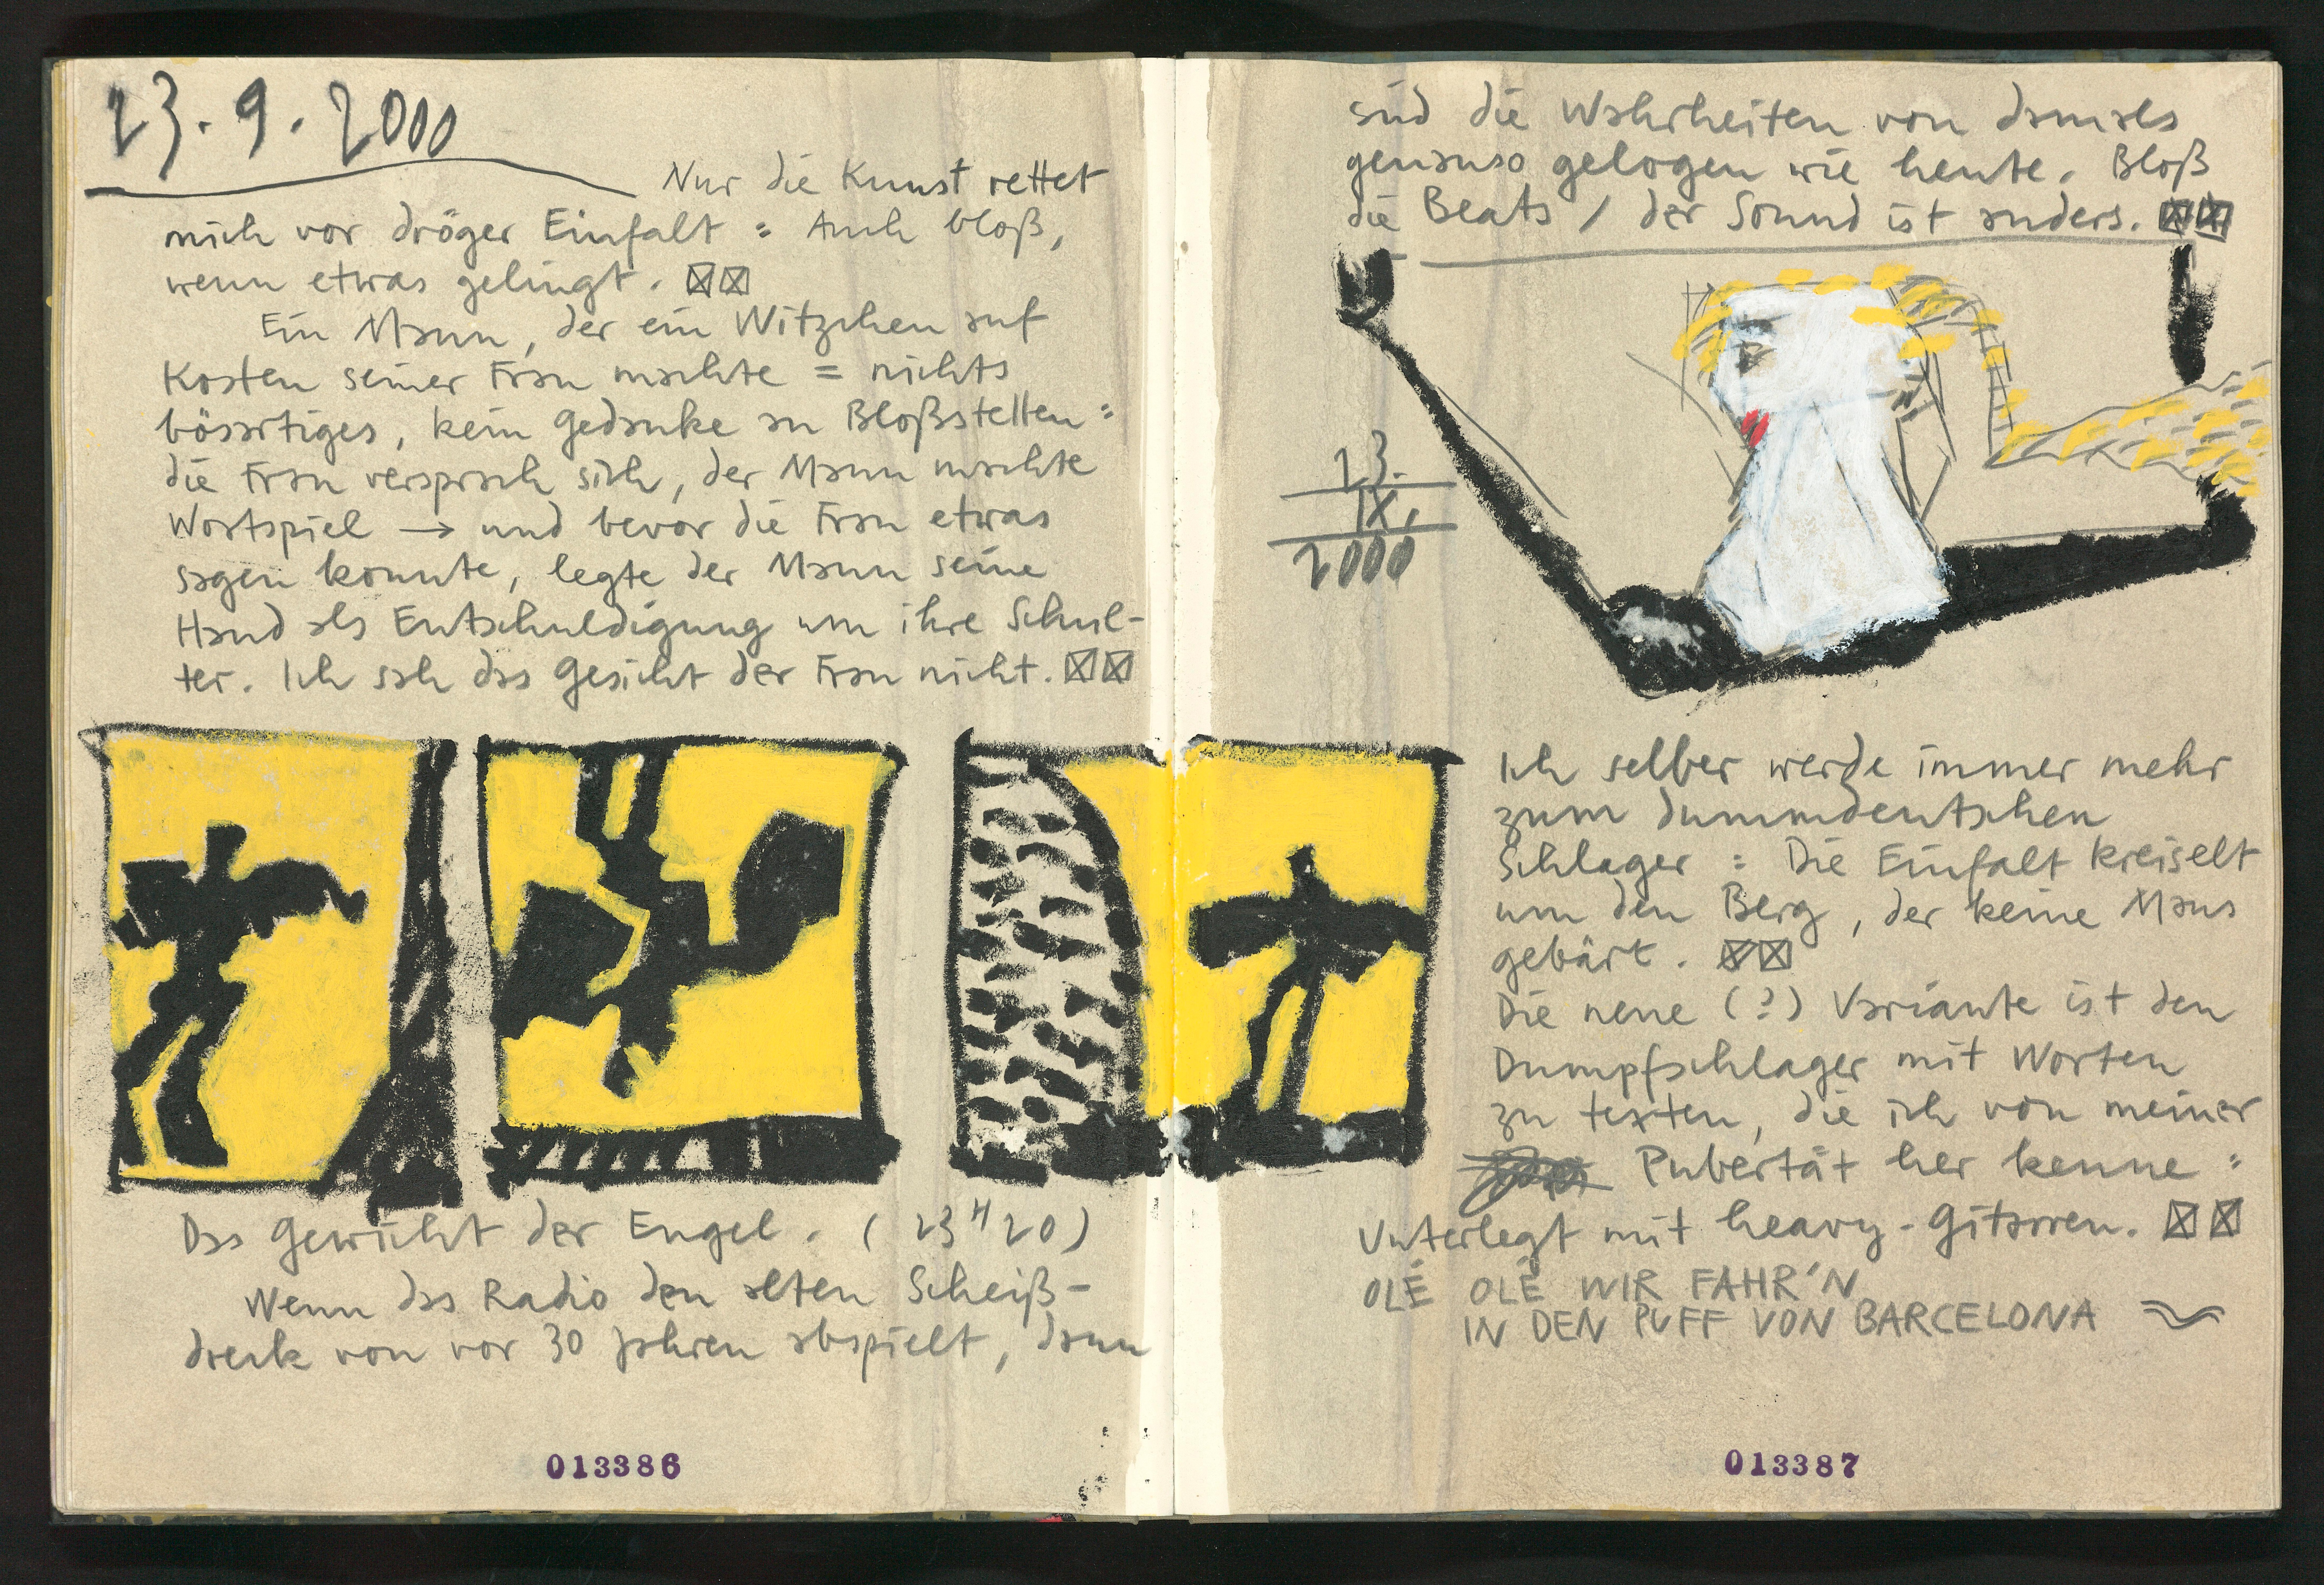 23.9.2000
Nur die Kunst rettet
mich vor dröger Einfalt : Auch bloß,
wenn etwas gelingt.
Ein Mann, der ein Witzchen auf
Kosten seiner Frau machte = nichts
bösartiges, kein Gedanke an Bloßstellen :
die Frau versprach sich, der Mann machte
Wortspiel → und bevor die Frau etwas
sagen konnte, legte der Mann seine
Hand als Entschuldigung um ihre Schul-
ter. Ich sah das Gesicht der Frau nicht.
Das Gewicht der Engel. (23H20)
Wenn das Radio den alten Scheiß-
dreck von vor 30 Jahren abspielt, dann
013386
sind die Wahrheiten von damals
genauso gelogen wie heute. Bloß
die Beats / der Sound ist anders.
23.
IX.
2000
Ich selber werde immer mehr
zum dummdeutschen
Schlager : Die Einfalt kreiselt
um den Berg, der keine Maus
gebärt.
Die neue (?) Variante ist den
Dumpfschlager mit Worten
zu texten, die ich von meiner
Pubertät her kenne :
Unterlegt mit heavy-Gitarren.
OLÉ OLÉ WIR FAHR'N
IN DEN PUFF VON BARCELONA
013387